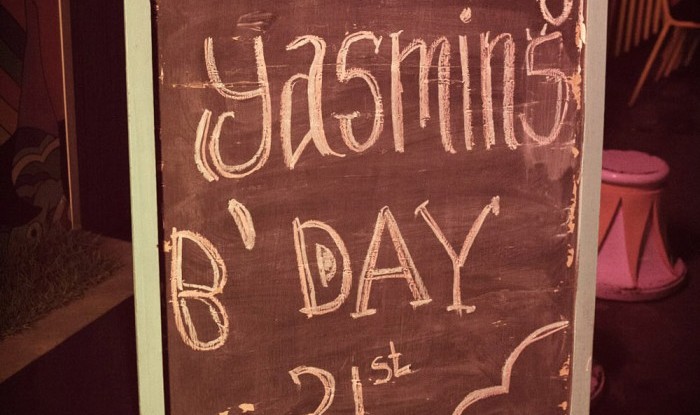 yasmin's
B'DAY
21st